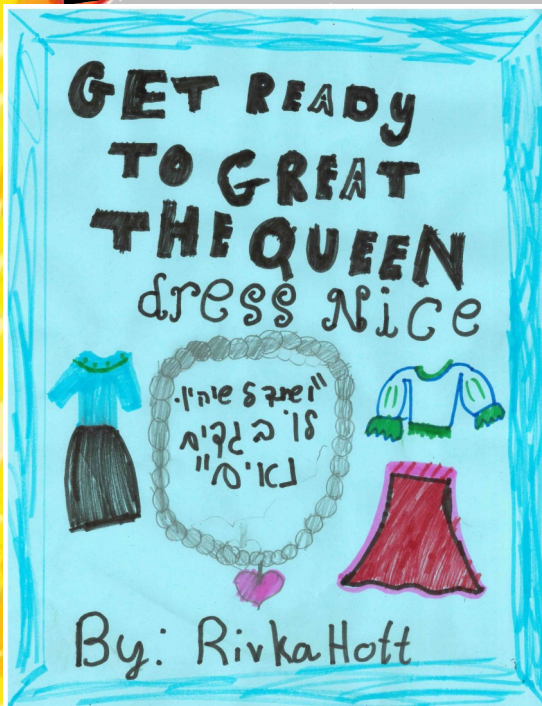 GET READY
TO GREAT
THE QUEEN
dress Nice
"ישתדל שיהיו
לו בגדים
נאים"
By: Rivka Hott